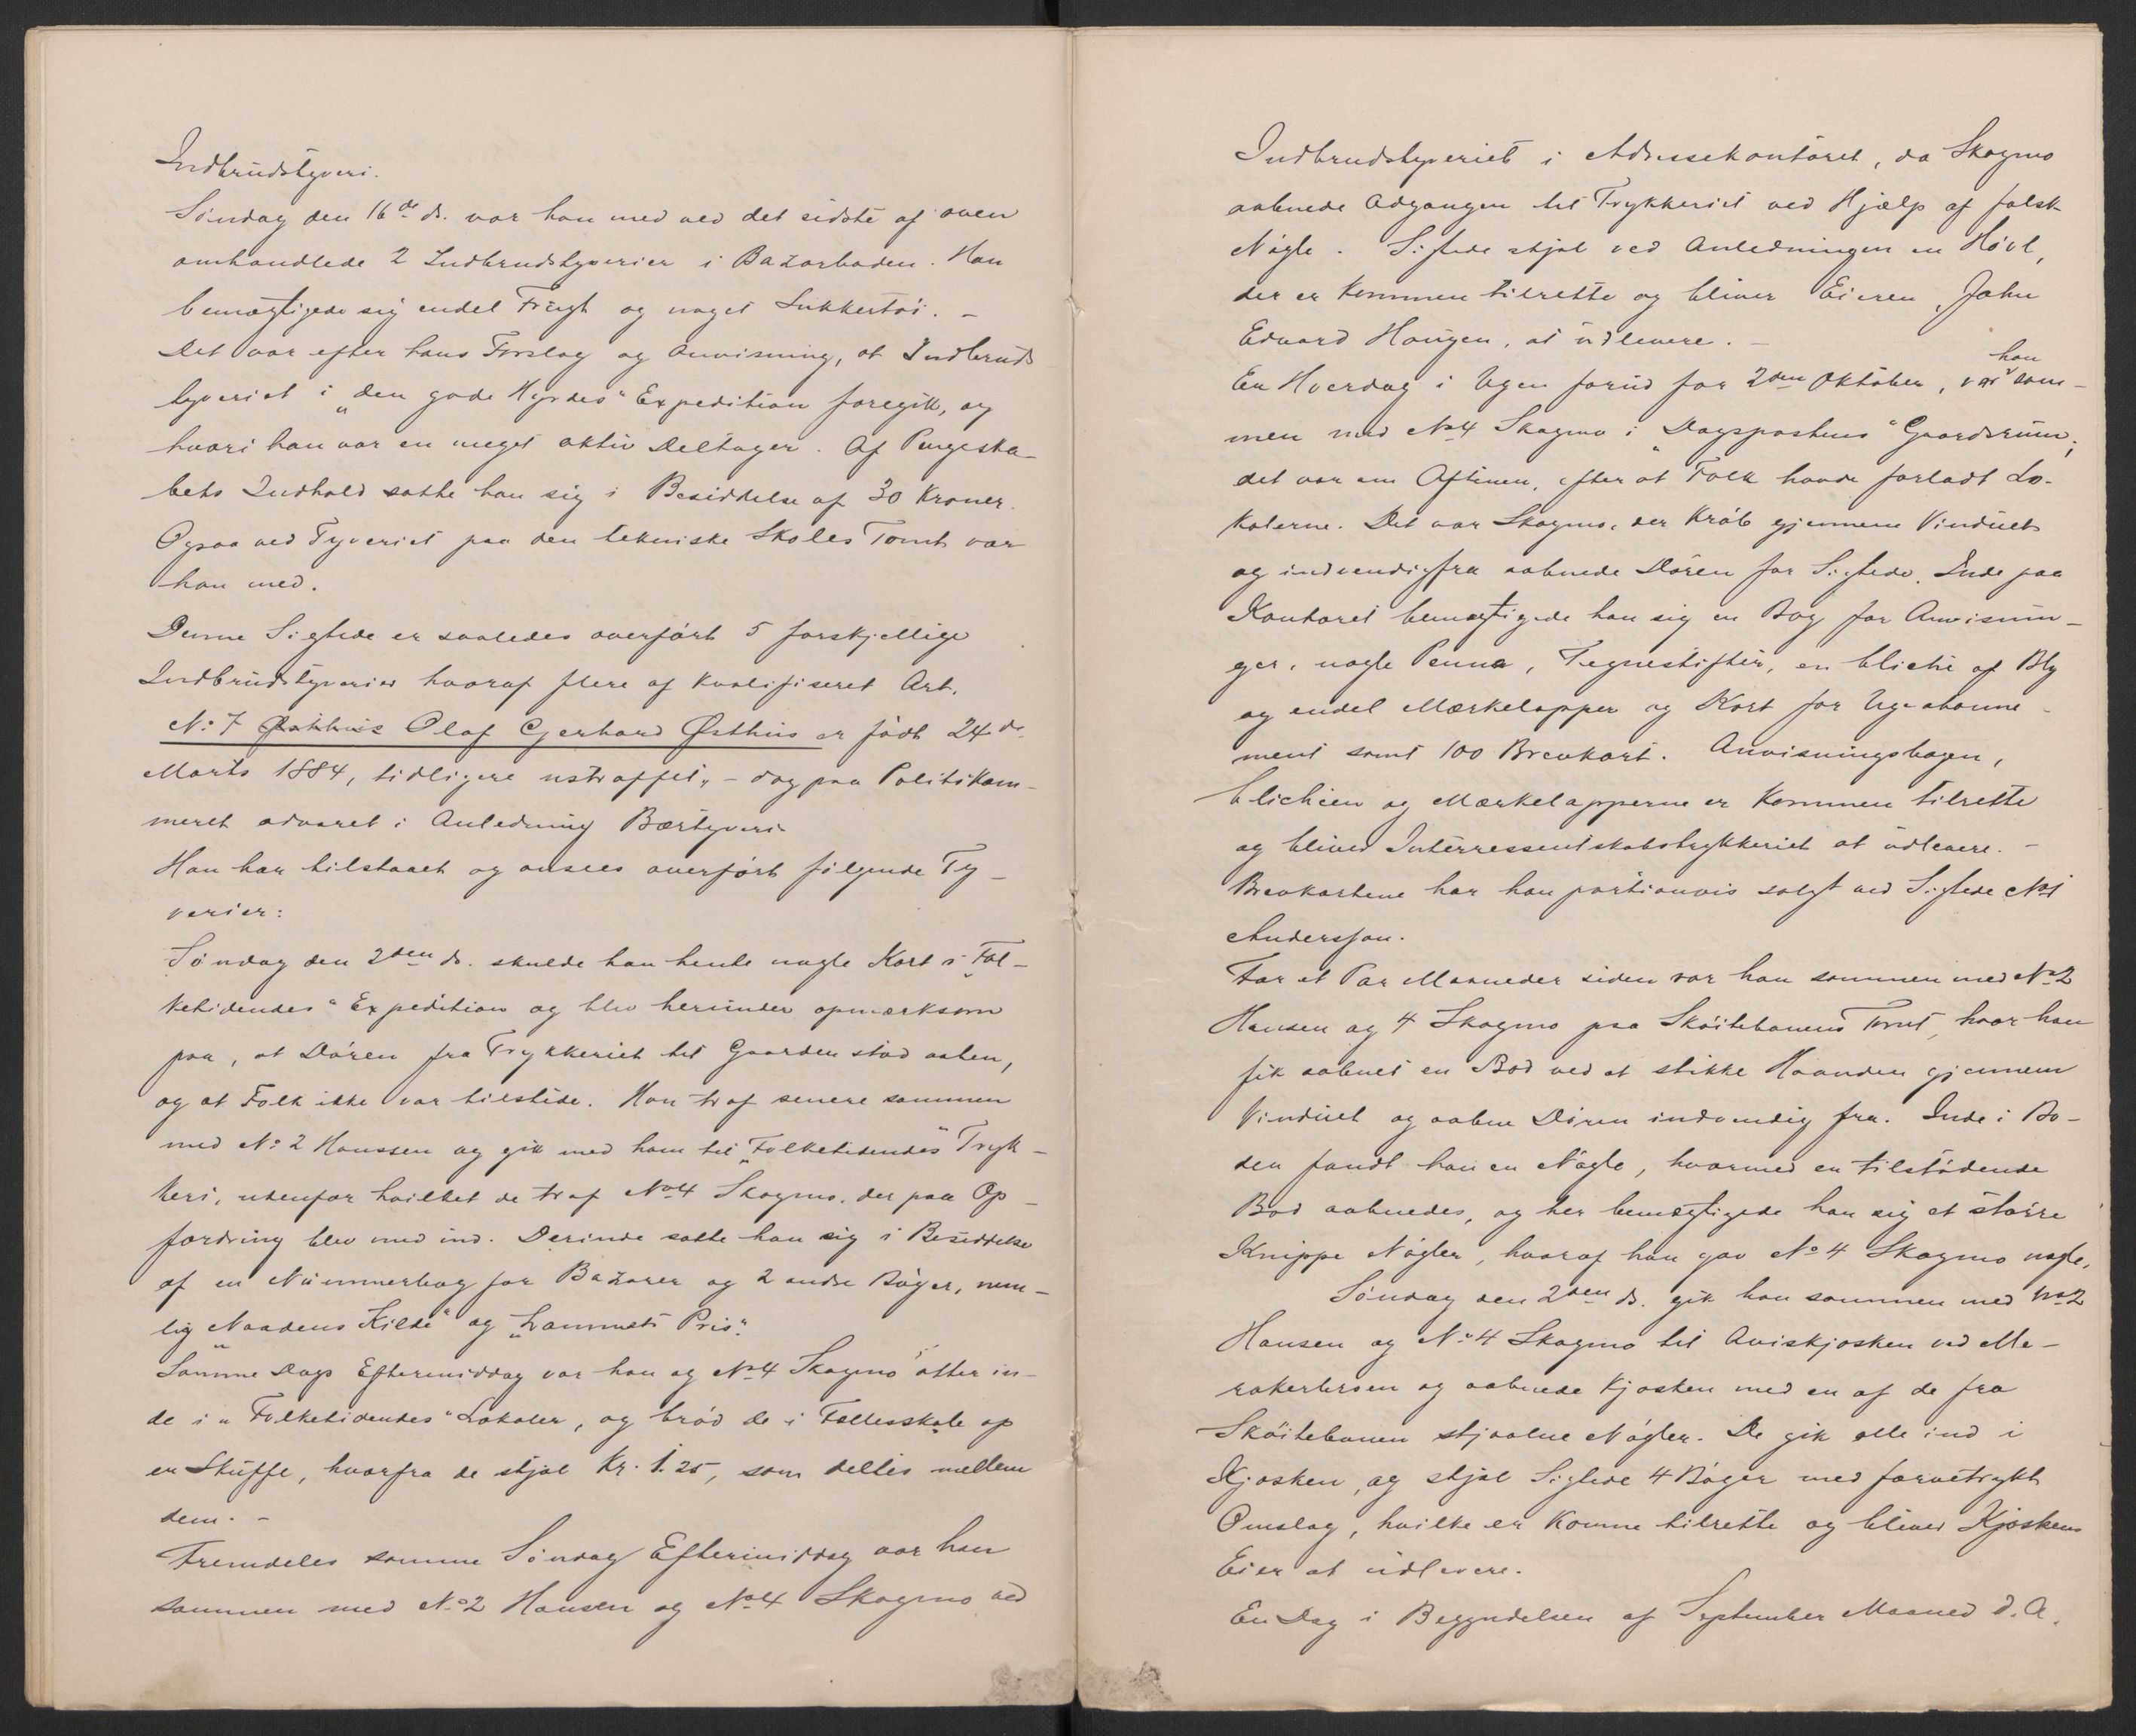 Indbrudstyveri.
Söndag den 16de ds. var han med ved det sidste af oven
omhandlede 2 Indbrudstyverier i Bazarboden. Han
bemægtigede sig endel Frugt og noget Sukkertöi. –
Det var efter hans Forslag og Anvisning, at Indbruds
tyveriet i „den gode Hyrdes" Expedition foregik, og
hvori han var en meget aktiv Deltager. Af Pengeska-
bets Indhold satte han sig i Besiddelse af 30 Kroner.
Ogsaa ved Tyveriet paa den tekniske Skoles Tomt var
han med.
Denne Sigtede er saaledes overfört 5 forskjellige
Indbrudstyverier hvoraf flere af kvalifiseret Art.
No 7 Østhus Olaf Gerhard Østhus er födt 24de
Marts 1884, tidligere ustraffet, – dog paa Politikam-
meret advaret i Anledning Bærtyveri
Han har tilstaaet og ansees overfört fölgende Ty-
verier:
Söndag den 2den ds. skulde han hente nogle Kort i „Fol-
ketidendes" Expedition og blev herunder opmærksom
paa, at Dören fra Trykkeriet til Gaarden stod aaben,
og at Folk ikke var tilstede. Han traf senere sammen
med No 2 Hanssen og gik med ham til „Folketidendes" Tryk-
keri, udenfor hvilket de traf No 4 Skogmo, der paa Op-
fordring blev med ind. Derinde satte han sig i Besiddelse
af en Nummerbog for Bazarer og 2 andre Böger, nem-
lig „Naadens Kilde" og „Lammets Pris".
Samme Dags Eftermiddag var han og No 4 Skogmo atter in-
de i „Folketidendes" Lokaler, og bröd de i Fællesskab op
en Skuffe, hvorfra de stjal Kr. 1.25, som deltes mellem
dem. –
Fremdeles samme Söndag Eftermiddag var han
sammen med No 2 Hansen og No 4 Skogmo ved
Indbrudstyveriet i Adressekontoret, da Skogmo
aabnede Adgangen til Trykkeriet ved Hjælp af falsk
Nögle. Sigtede stjal ved Anledningen en Hövl,
der er kommen tilrette og bliver Eieren, John
Edvard Haugen, at udlevere. –
En Hverdag i Ugen forud for 2den Oktober, var han sam-
men med No 4 Skogmo i „Dagspostens" Gaardsrum;
det var om Aftenen, efter at Folk havde forladt Lo-
kalerne. Det var Skogmo, der kröb gjennem Vinduet
og indvendigfra aabnede Dören for Sigtede. Inde paa
Kontoret bemægtigede han sig en Bog for Anvisnin-
ger, nogle Penna, Tegnestifter, en cliché af Bly
og endel Mærkelapper og Kort for Ugeabonne-
ment samt 100 Brevkort. Anvisningsbogen,
clichéen og Mærkelapperne er kommen tilrette
og bliver Interressentskabstrykkeriet at udlevere. –
Brevkortene har han portionvis solgt ved Sigtede No 1
Anderssen.
For et Par Maaneder siden var han sammen med No 2
Hansen og 4 Skogmo paa Sköitebanens Tomt, hvor han
fik aabnet en Bod ved at stikke Haanden gjennem
Vinduet og aabne Dören indvendig fra. Inde i Bo-
den fandt han en Nögle, hvormed en tilstödende
Bod aabnedes, og her bemægtigede han sig et större
Knippe Nögler, hvoraf han gav No 4 Skogmo nogle.
Söndag den 2den ds. gik han sammen med No 2
Hansen og No 4 Skogmo til Aviskjosken ved Me-
rakerbroen og aabnede Kjosken med en af de fra
Sköitebanen stjaalne Nögler. De gik alle ind i
Kjosken, og stjal Sigtede 4 Böger med farvetrykt
Omslag, hvilke er komne tilrette og bliver Kjoskens
Eier at udlevere.
En Dag i Begyndelsen af September Maaned d. A.